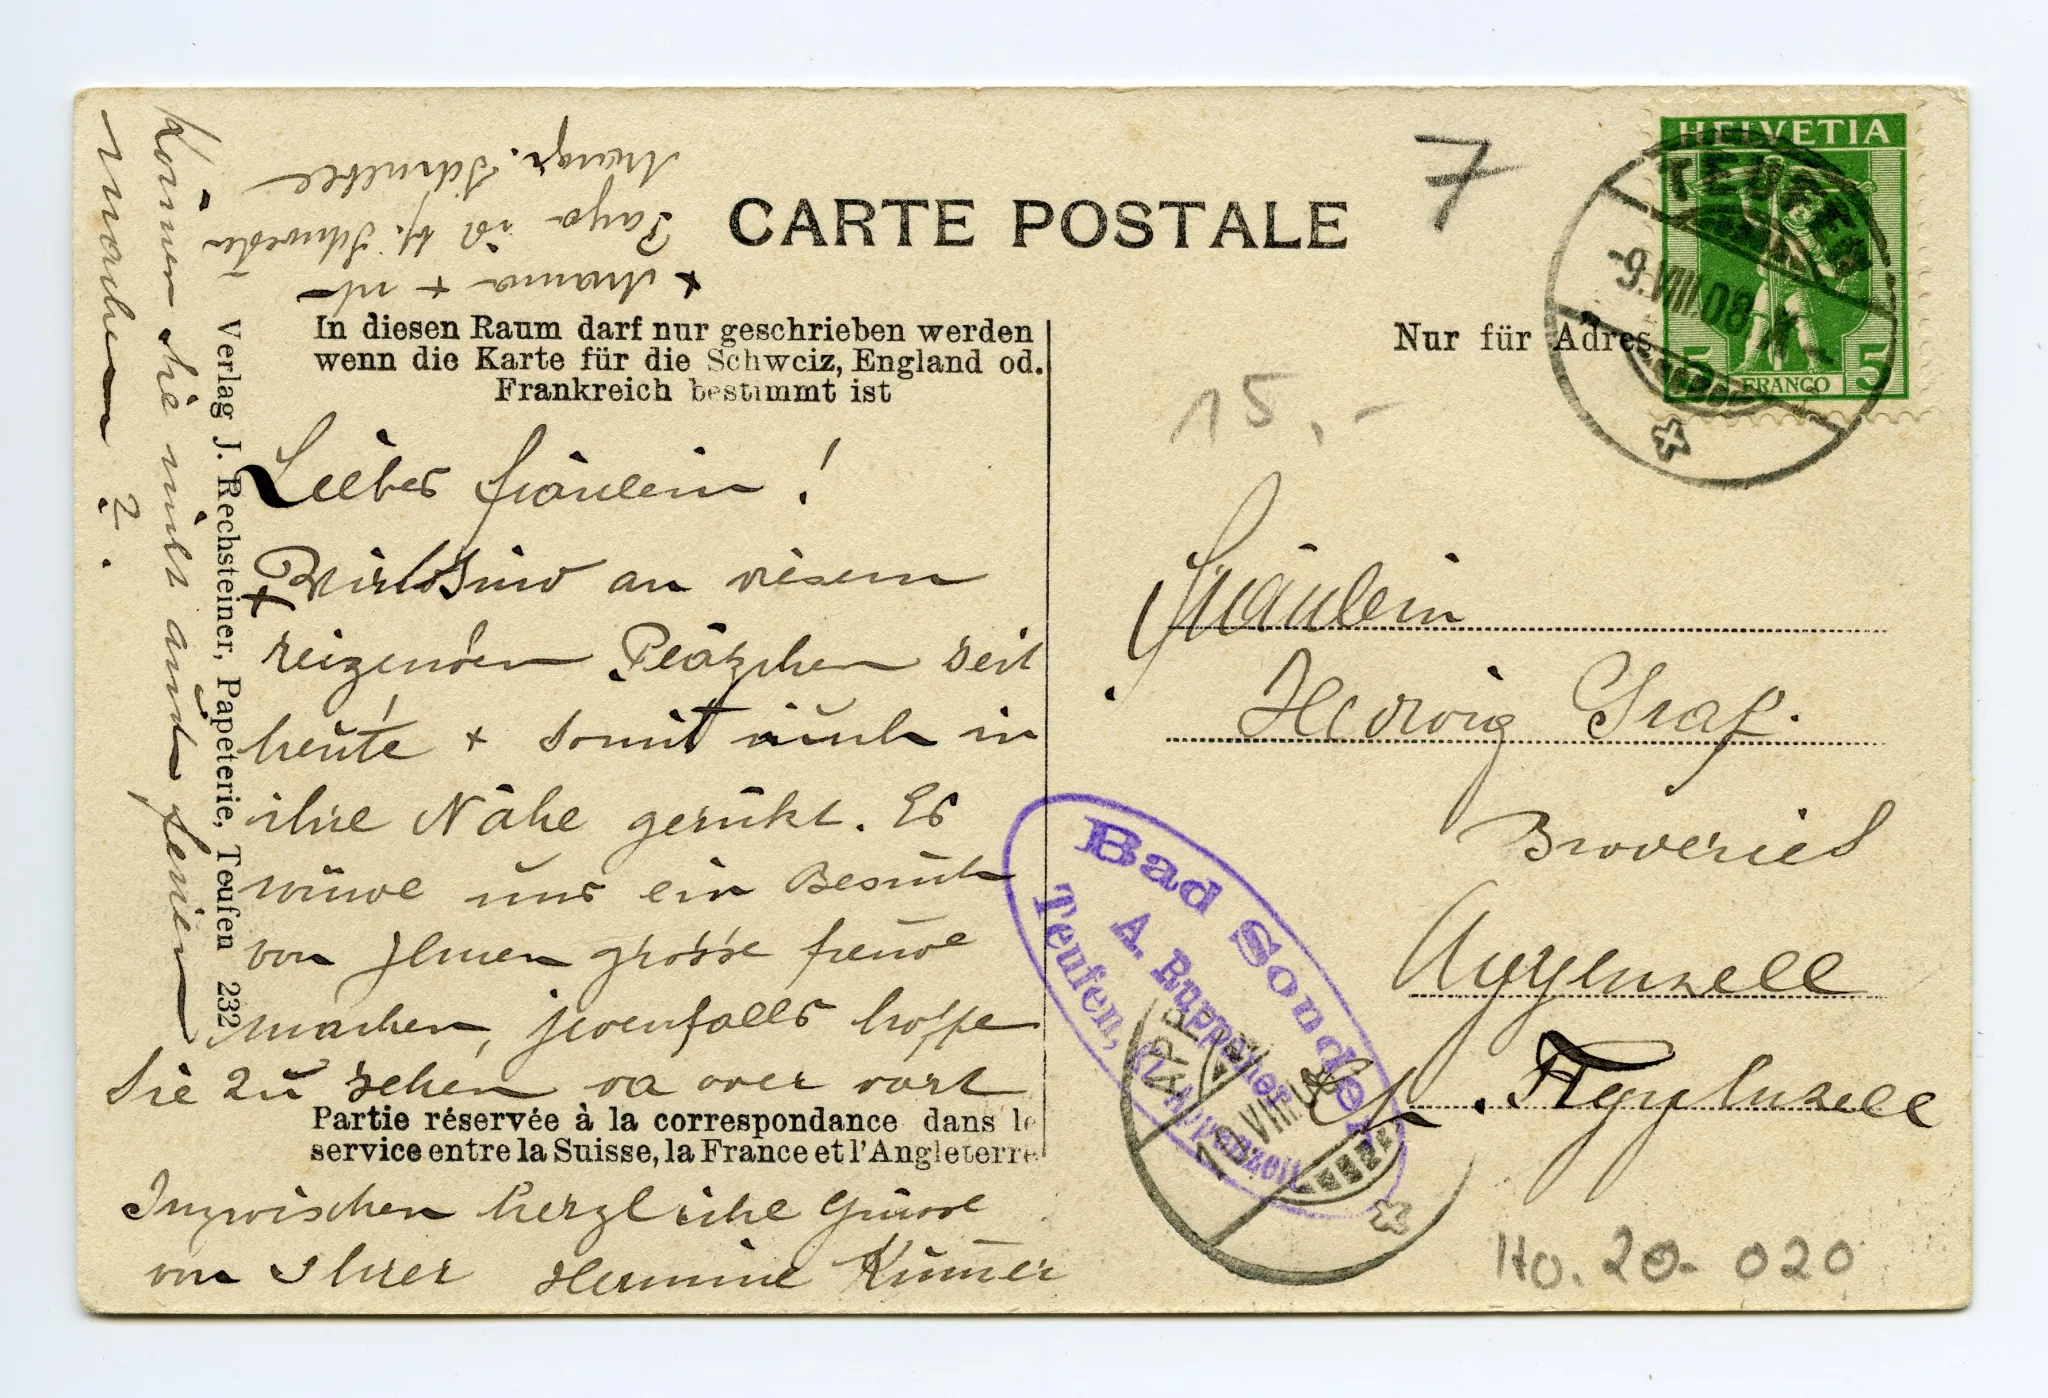 CARTE POSTALE
7
HELVETIA
TEUFEN
-9.VIII.08-X-
5 FRANCO 5
In diesen Raum darf nur geschrieben werden
wenn die Karte für die Schweiz, England od.
Frankreich bestimmt ist
Nur für Adres
15,-
Liebes Fräulein!
Wir sind an diesem
reizenden Pläzchen seit
heute + somit auch in
ihre Nähe gerükt. Es
würde uns ein Besuch
von Ihnen grosse freude
machen, jedenfalls hoffe
Sie zu sehen da oder dort
Partie réservée à la correspondance dans le
service entre la Suisse, la France et l'Angleterre
Inzwischen herzliche Grüsse
von Ihrer Hermine Kumer
Können Sie nicht auch ferien
machen?
+ Mama + ich
Papa ist bf. Schwester
Verlag J. Rechsteiner, Papeterie, Teufen 232
Fräulein
Hedwig Graf.
Broderies
Appenzell
Ct. Appenzell
Bad Sonder
A. Ruppaner
Teufen,
APPENZELL
10.VIII.08
HO.20-020